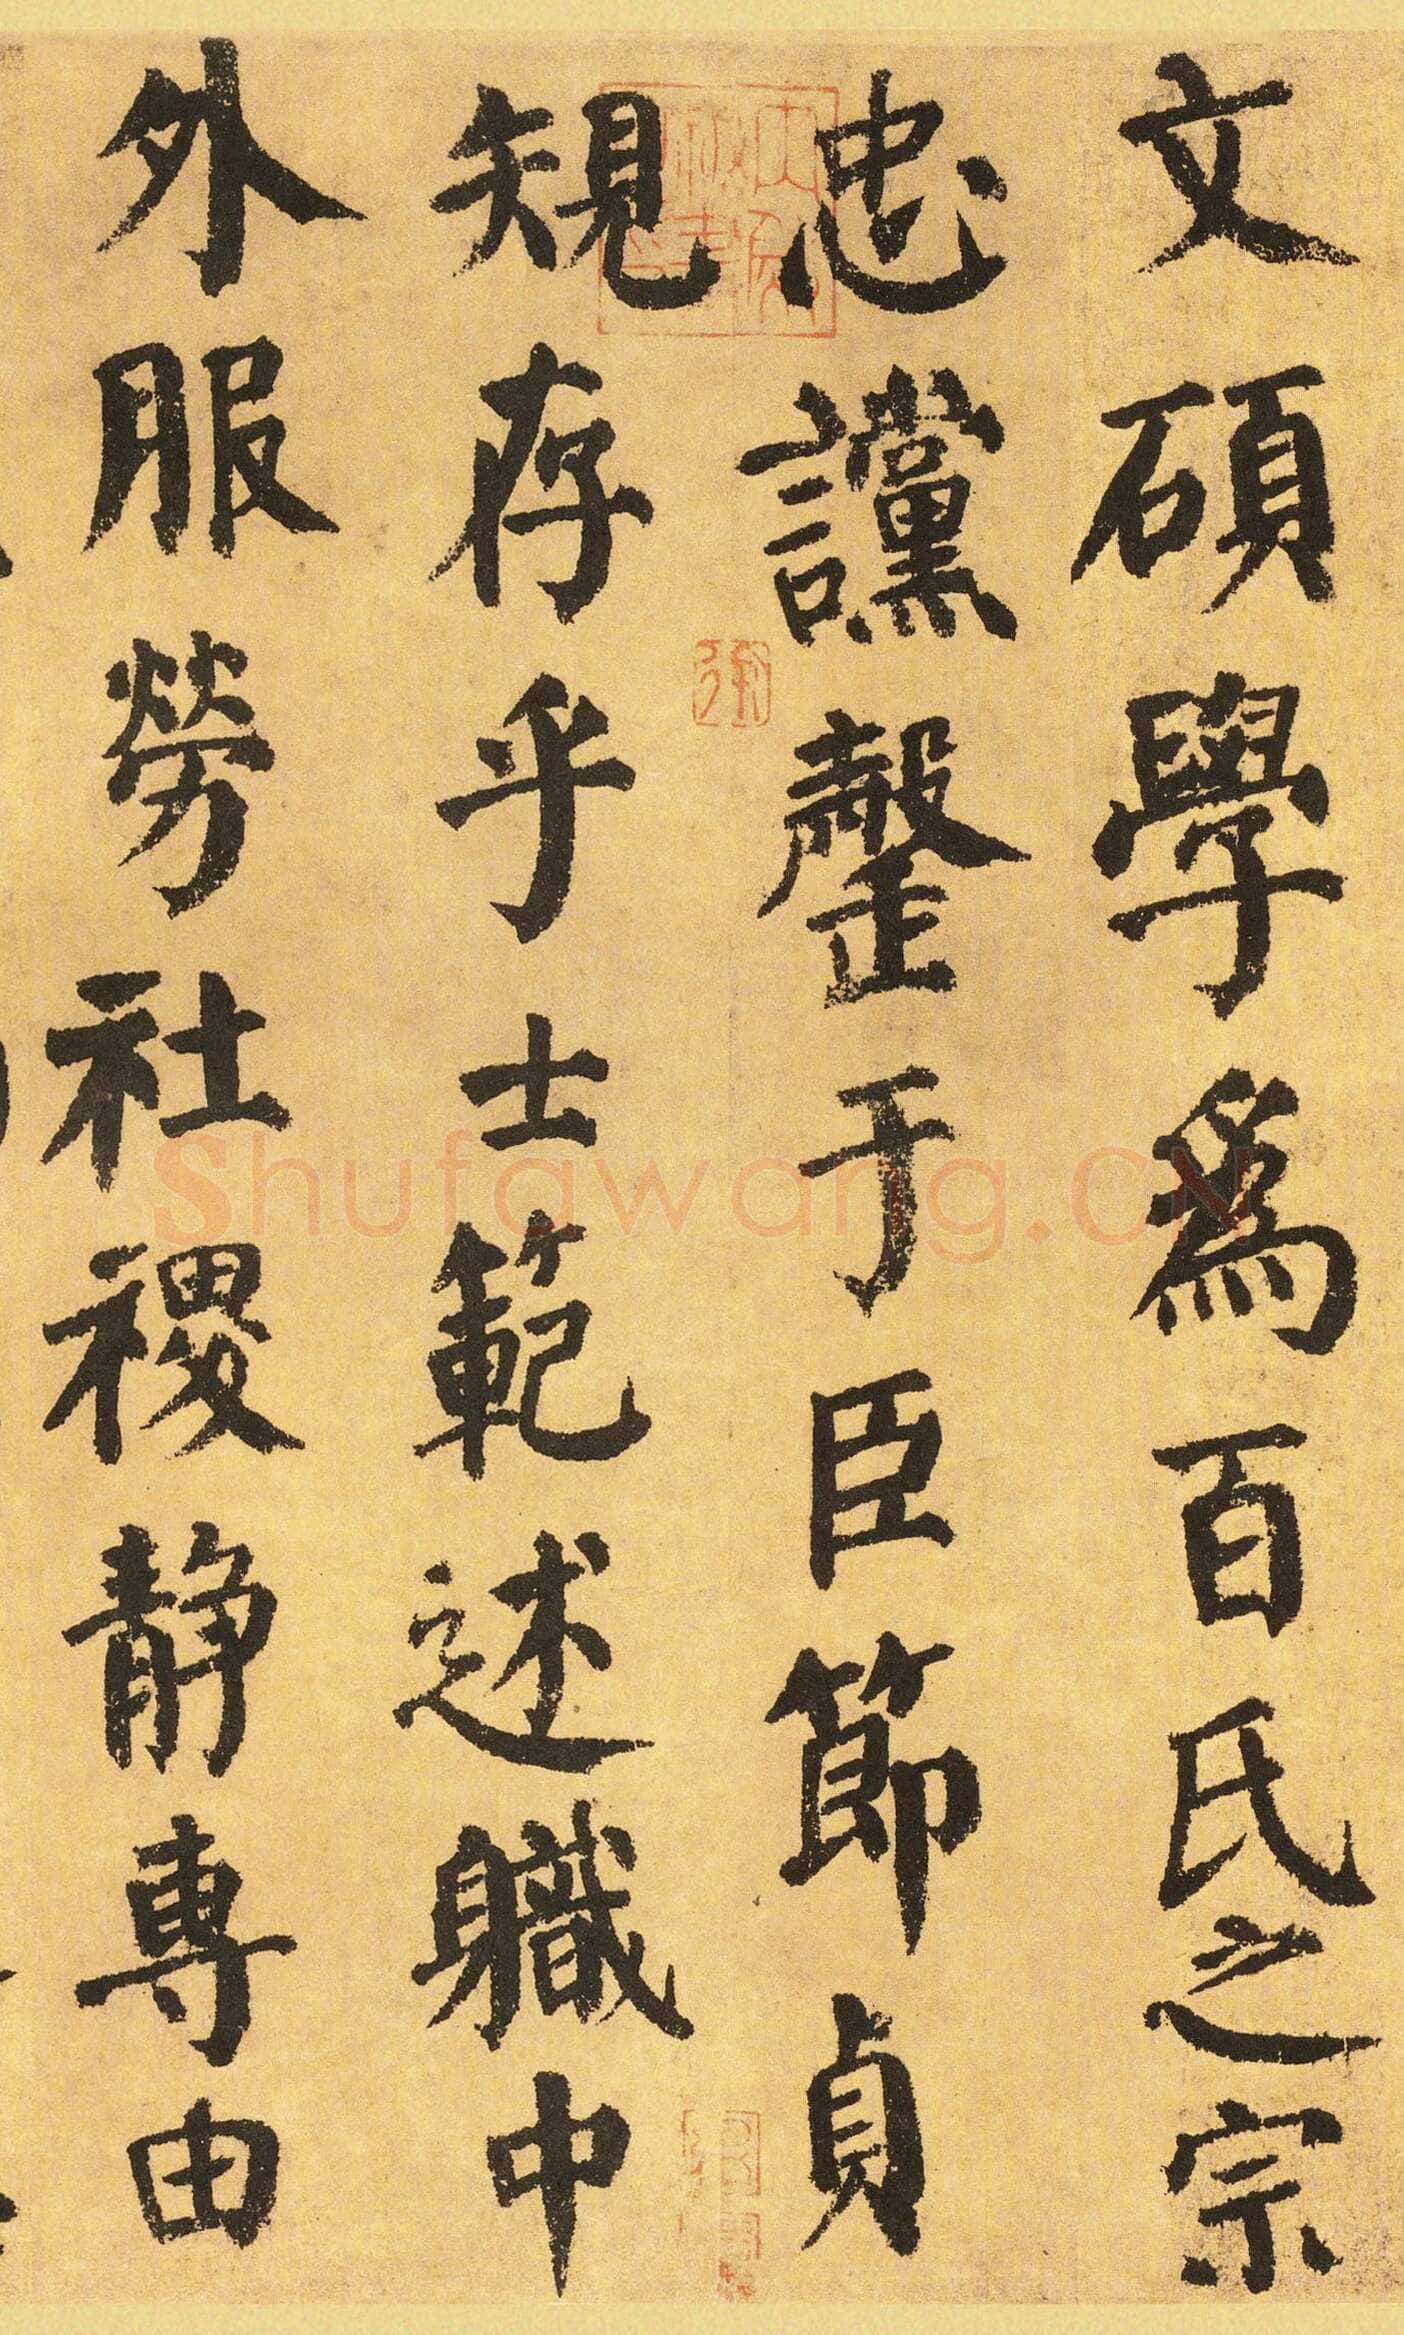 文碩學爲百氏之宗
忠讜罄于臣節貞
規存乎士範述職中
外服勞社稷靜專由
Shufawang.CN